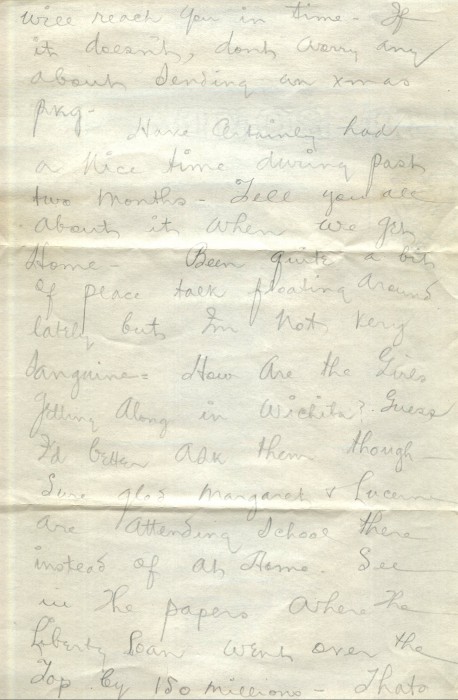 will reach you in time - If
it doesn't, don't worry any
about sending an xmas
pkg -
Have certainly had
a nice time during past
two months - Tell you all
about it when we get
Home Been quite a bit
of peace talk floating around
lately but I'm not very
sanguine = How are the Girls
getting along in Wichita? Guess
I'd better ask them though -
Sure glad Margaret & Lucerne
are attending school there
instead of at Home. See
in the papers where the
Liberty Loan went over the
Top by 150 millions - Thats